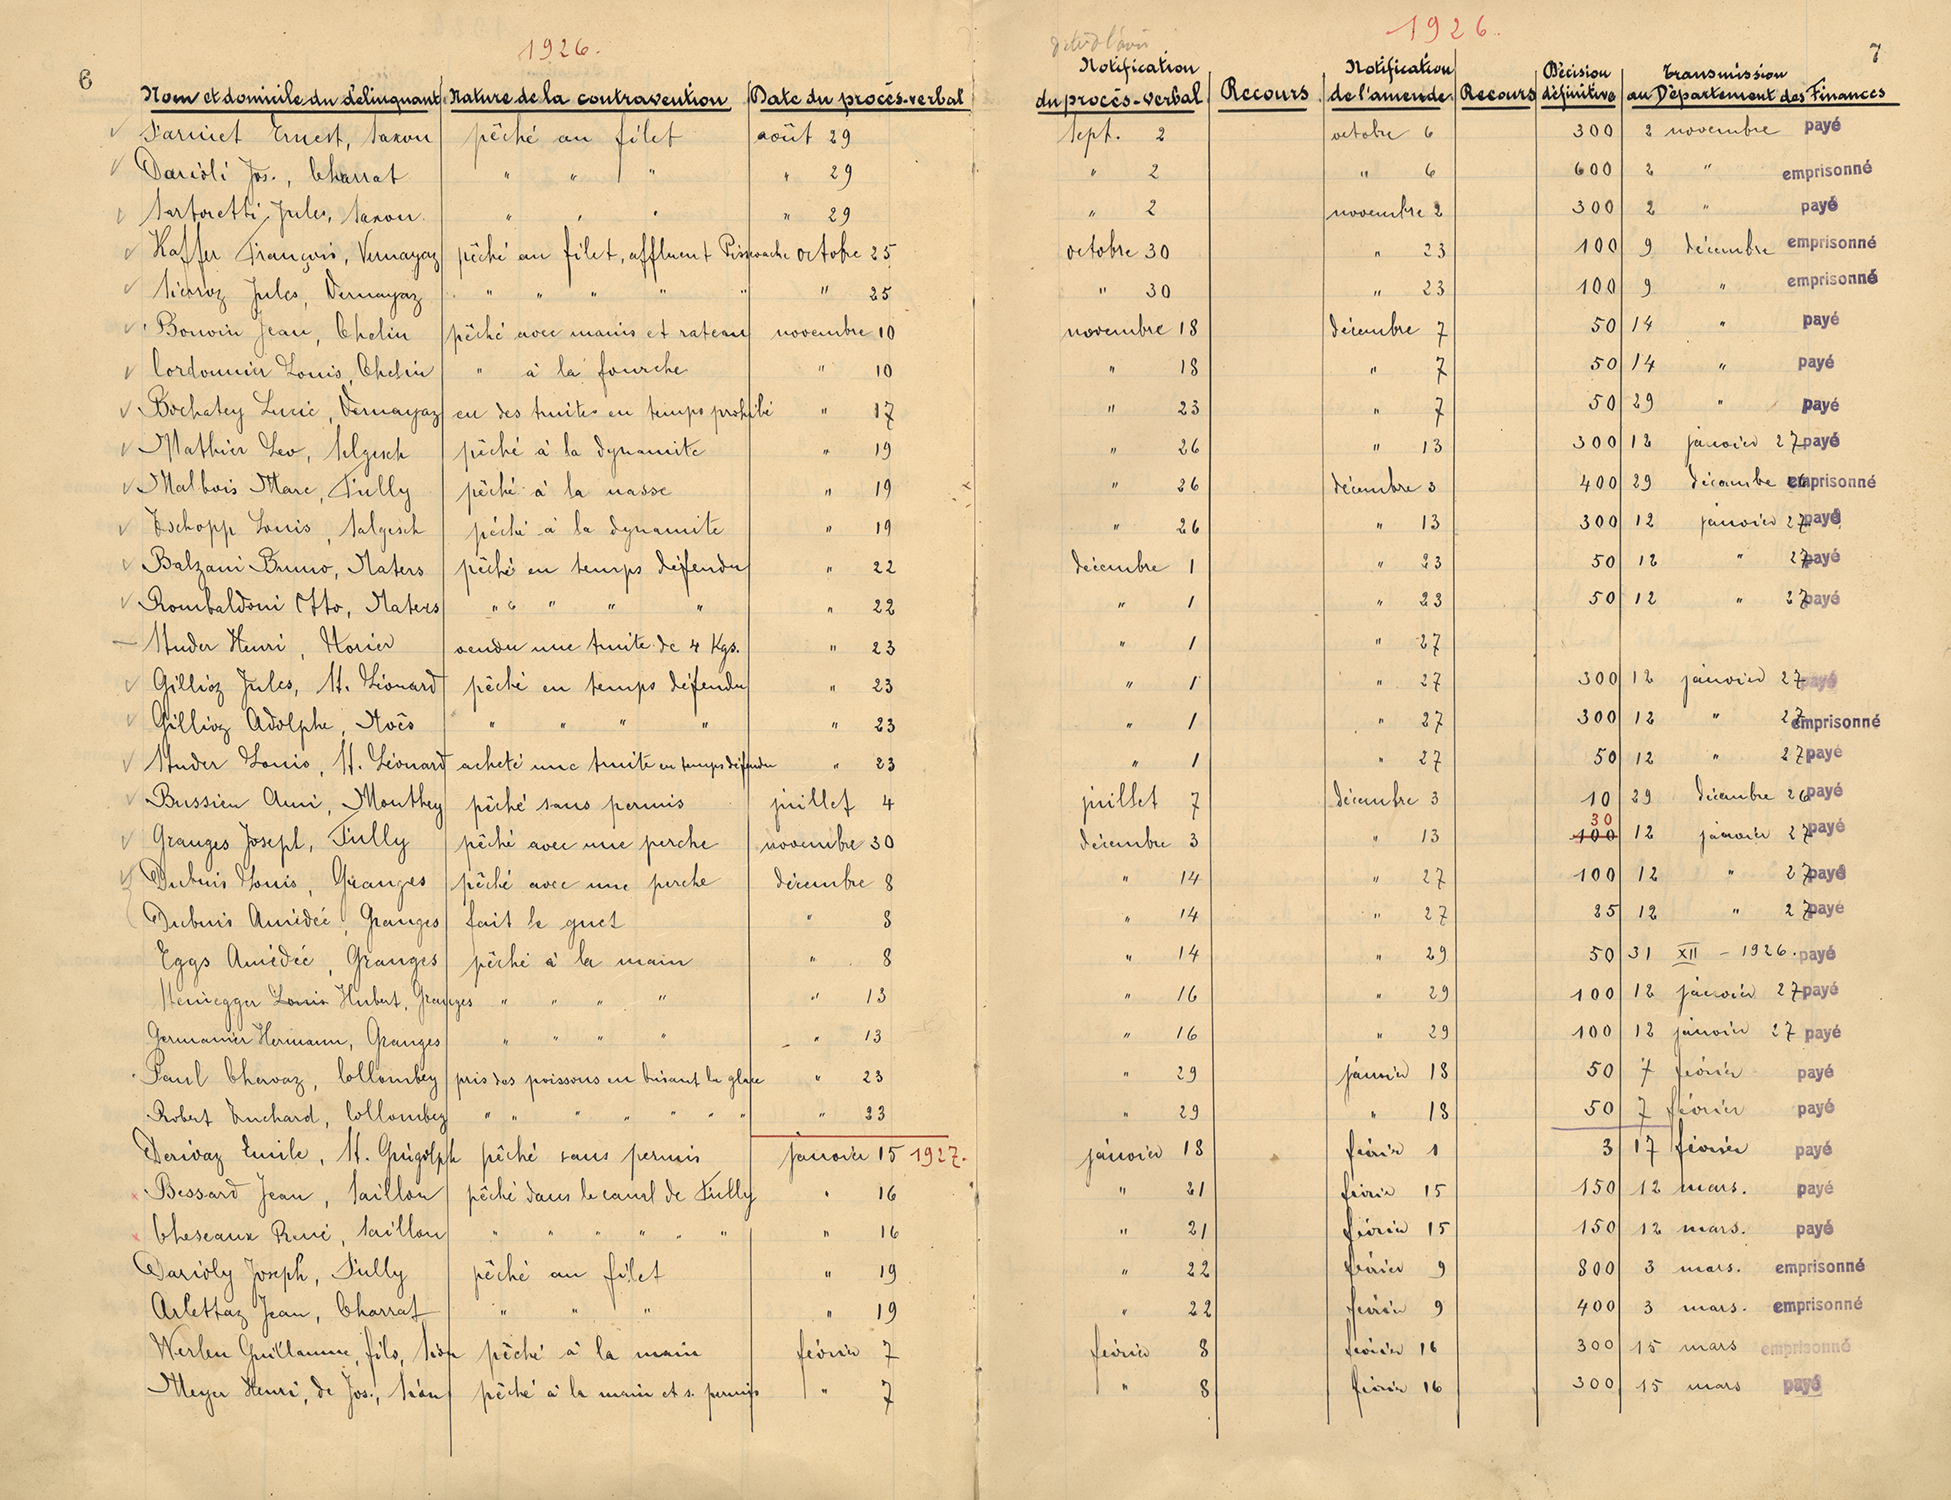 6
1926.
Nom et domicile du délinquant Nature de la contravention Date du procès-verbal
Farinet Ernest, Saxon pêché au filet août 29
Darioli Jos., Charrat " " " " 29
Sartoretti Jules, Saxon " " " " 29
Haffer François, Vernayaz pêché au filet, affluent Pissevache octobre 25
Sierroz Jules, Vernayaz " " " " " " 25
Bonvin Jean, Chelin pêché avec mains et rateau novembre 10
Cordonnier Louis, Chelin " à la fourche " 10
Bochatey Lucie, Vernayaz eu des truites en temps prohibé " 17
Mathier Leo, Salgesch pêché à la dynamite " 19
Malbois Marc, Fully pêché à la nasse " 19
Tschopp Louis, Salgesch pêché à la dynamite " 19
Balzani Bruno, Naters pêché en temps défendu " 22
Rombaldoni Otto, Naters " " " " " " 22
Studer Henri, vendu une truite de 4 Kgs. " 23
Gillioz Jules, St. Léonard pêché en temps défendu " 23
Gillioz Adolphe, Noës " " " " " 23
Studer Louis, St. Léonard acheté une truite en temps défendu " 23
Bussien Ami, Monthey pêché sans permis juillet 4
Granges Joseph, Fully pêché avec une perche novembre 30
Dubuis Louis, Granges pêché avec une perche décembre 8
Dubuis Amédée, Granges fait le guet " 8
Eggs Amédée, Granges pêché à la main " 8
Louis Hubert, Granges " " " " " 13
Germanier Hermann, Granges " " " " " 13
Paul Chervaz, Collombey pris des poissons en brisant la glace " 23
Robert Turchard, Collombey " " " " " " " " 23
Derivaz Emile, St. Gingolph pêché sans permis janvier 15 1927.
Bessard Jean, Saillon pêché dans le canal de Fully " 16
Cheseaux René, Saillon " " " " " " " 16
Darioly Joseph, Fully pêché au filet " 19
Arlettaz Jean, Charrat " " " " 19
Werlen Guillaume, fils, Sion pêché à la main février 7
Meyer Henri, de Jos., Sion pêché à la main et s. permis " 7
1926.
7
Notification du procès-verbal Recours Notification de l'amende Recours Décision définitive Transmission au Département des Finances
sept. 2 octobre 6 300 2 novembre payé
" 2 " 6 600 2 " emprisonné
" 2 novembre 2 300 2 " payé
octobre 30 " 23 100 9 décembre emprisonné
" 30 " 23 100 9 " emprisonné
novembre 18 décembre 7 50 14 " payé
" 18 " 7 50 14 " payé
" 23 " 7 50 29 " payé
" 26 " 13 300 12 janvier 27 payé
" 26 décembre 3 400 29 décembre 26 emprisonné
" 26 " 13 300 12 janvier 27 payé
décembre 1 " 23 50 12 " 27 payé
" 1 " 23 50 12 " 27 payé
" 1 " 27
" 1 " 27 300 12 janvier 27 payé
" 1 " 27 300 12 " 27 emprisonné
" 1 " 27 50 12 " 27 payé
juillet 7 décembre 3 10 29 décembre 26 payé
30
décembre 3 " 13 100 12 janvier 27 payé
" 14 " 27 100 12 " 27 payé
" 14 " 27 25 12 " 27 payé
" 14 " 29 50 31 XII - 1926. payé
" 16 " 29 100 12 janvier 27 payé
" 16 " 29 100 12 janvier 27 payé
" 29 janvier 18 50 7 février payé
" 29 " 18 50 7 février payé
janvier 18 février 1 3 17 février payé
" 21 février 15 150 12 mars. payé
" 21 février 15 150 12 mars. payé
" 22 février 9 800 3 mars. emprisonné
" 22 février 9 400 3 mars. emprisonné
février 8 février 16 300 15 mars emprisonné
" 8 février 16 300 15 mars payé